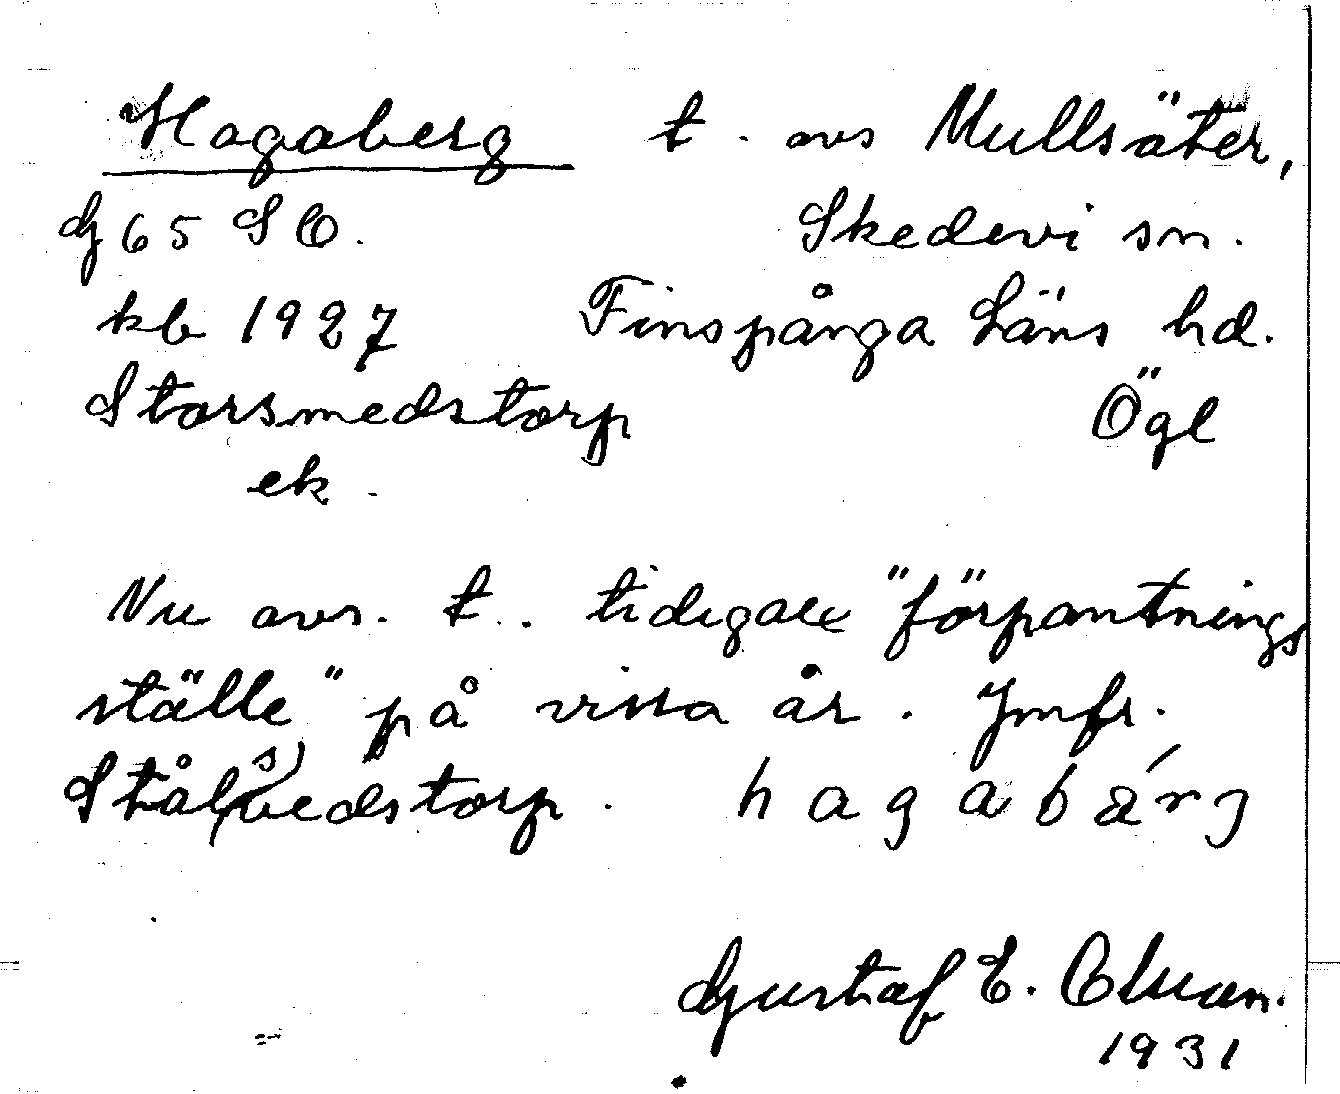 Hagaberg t. avs Mullsäter,
G 65 SO. Skedevi sn.
kb 1927 Finspånga Läns hd.
Storsmedstorp Ögl
ek.
Nu avs. t. tidigare "förpantnings
ställe" på vissa år. Jmfr.
Stål(s)vedstorp. hagabärg
Gustaf E. Olsson.
1931